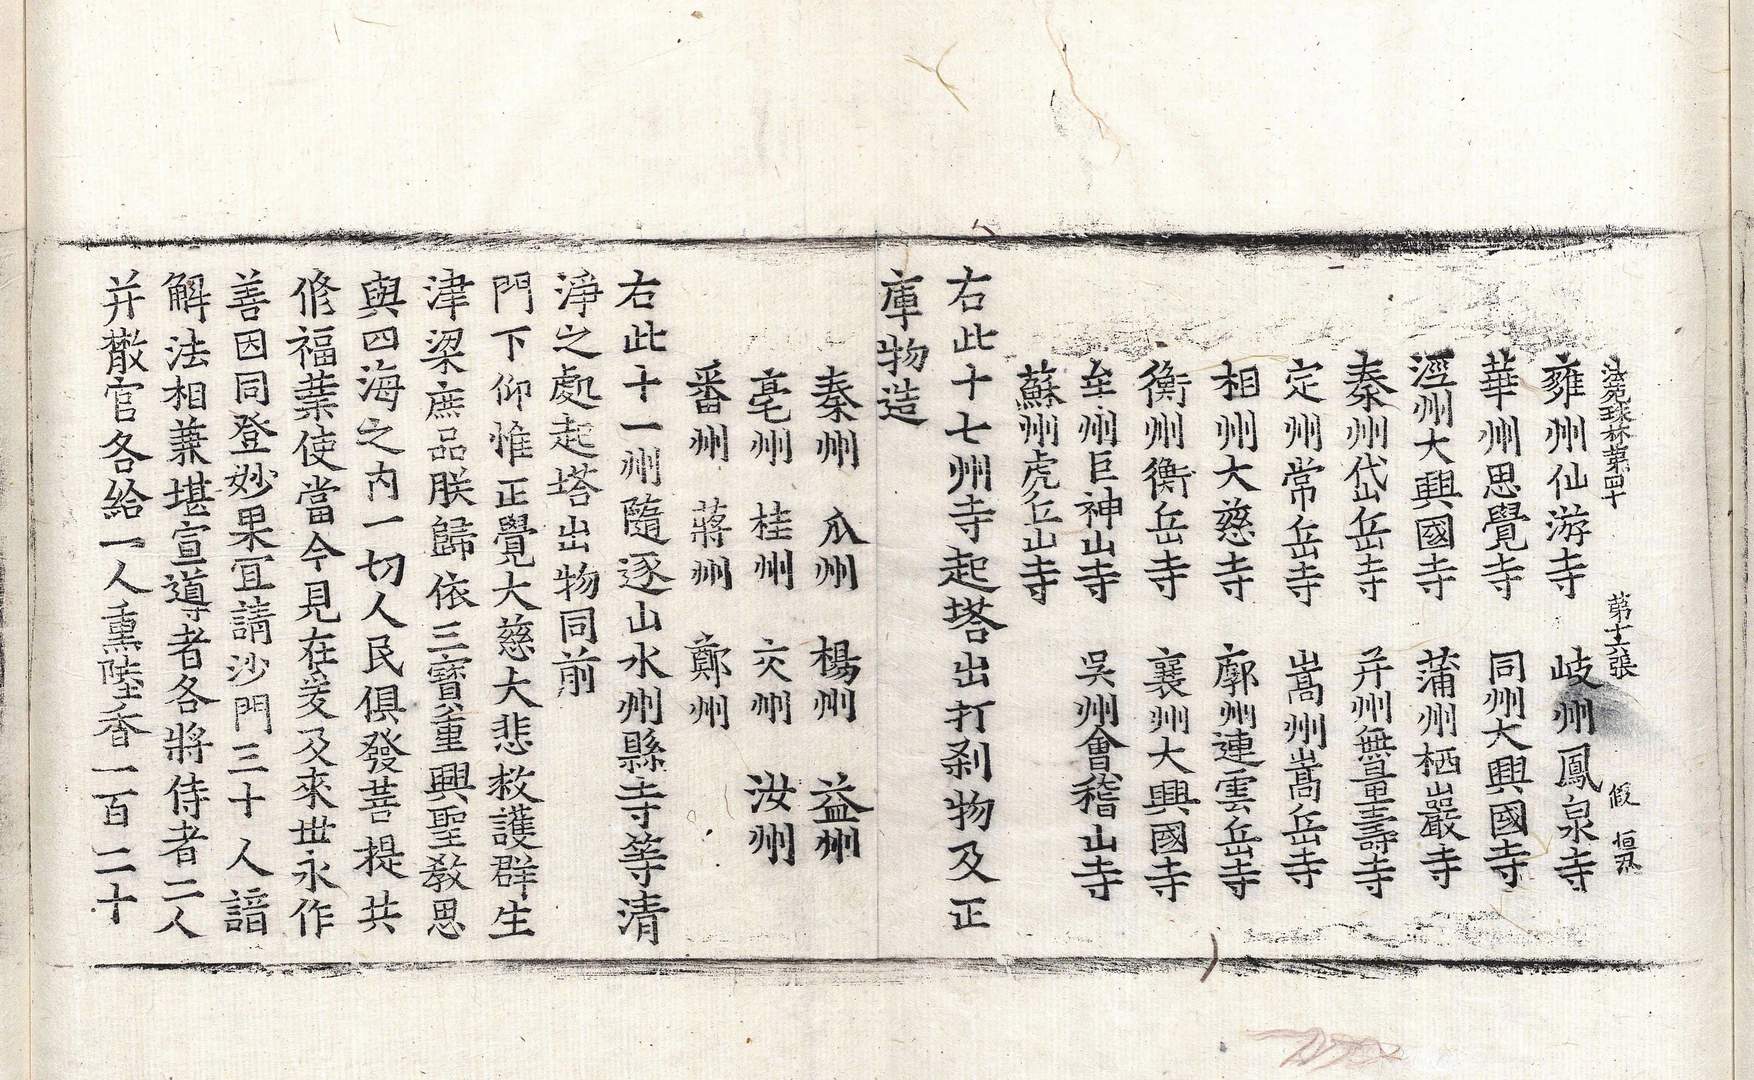 法苑珠林第四十 第十六張 假 
雍州仙游寺 岐州鳳泉寺
華州思覺寺 同州大興國寺
涇州大興國寺 蒲州栖巖寺
泰州岱岳寺 并州無量壽寺
定州常岳寺 嵩州嵩岳寺
相州大慈寺 廓州連雲岳寺
衡州衡岳寺 襄州大興國寺
牟州巨神山寺 吳州會稽山寺
蘇州虎丘山寺
右此十七州寺起塔出打剎物及正
庫物造
秦州 瓜州 楊州 益州
亳州 桂州 交州 汝州
番州 蔣州 鄭州
右此十一州隨逐山水州縣寺等清
淨之處起塔出物同前
門下仰惟正覺大慈大悲救護群生
津梁庶品朕歸依三寶重興聖教思
與四海之內一切人民俱發菩提共
修福業使當今見在爰及來世永作
善因同登妙果宜請沙門三十人諳
解法相兼堪宣導者各將侍者二人
并散官各給一人熏陸香一百二十